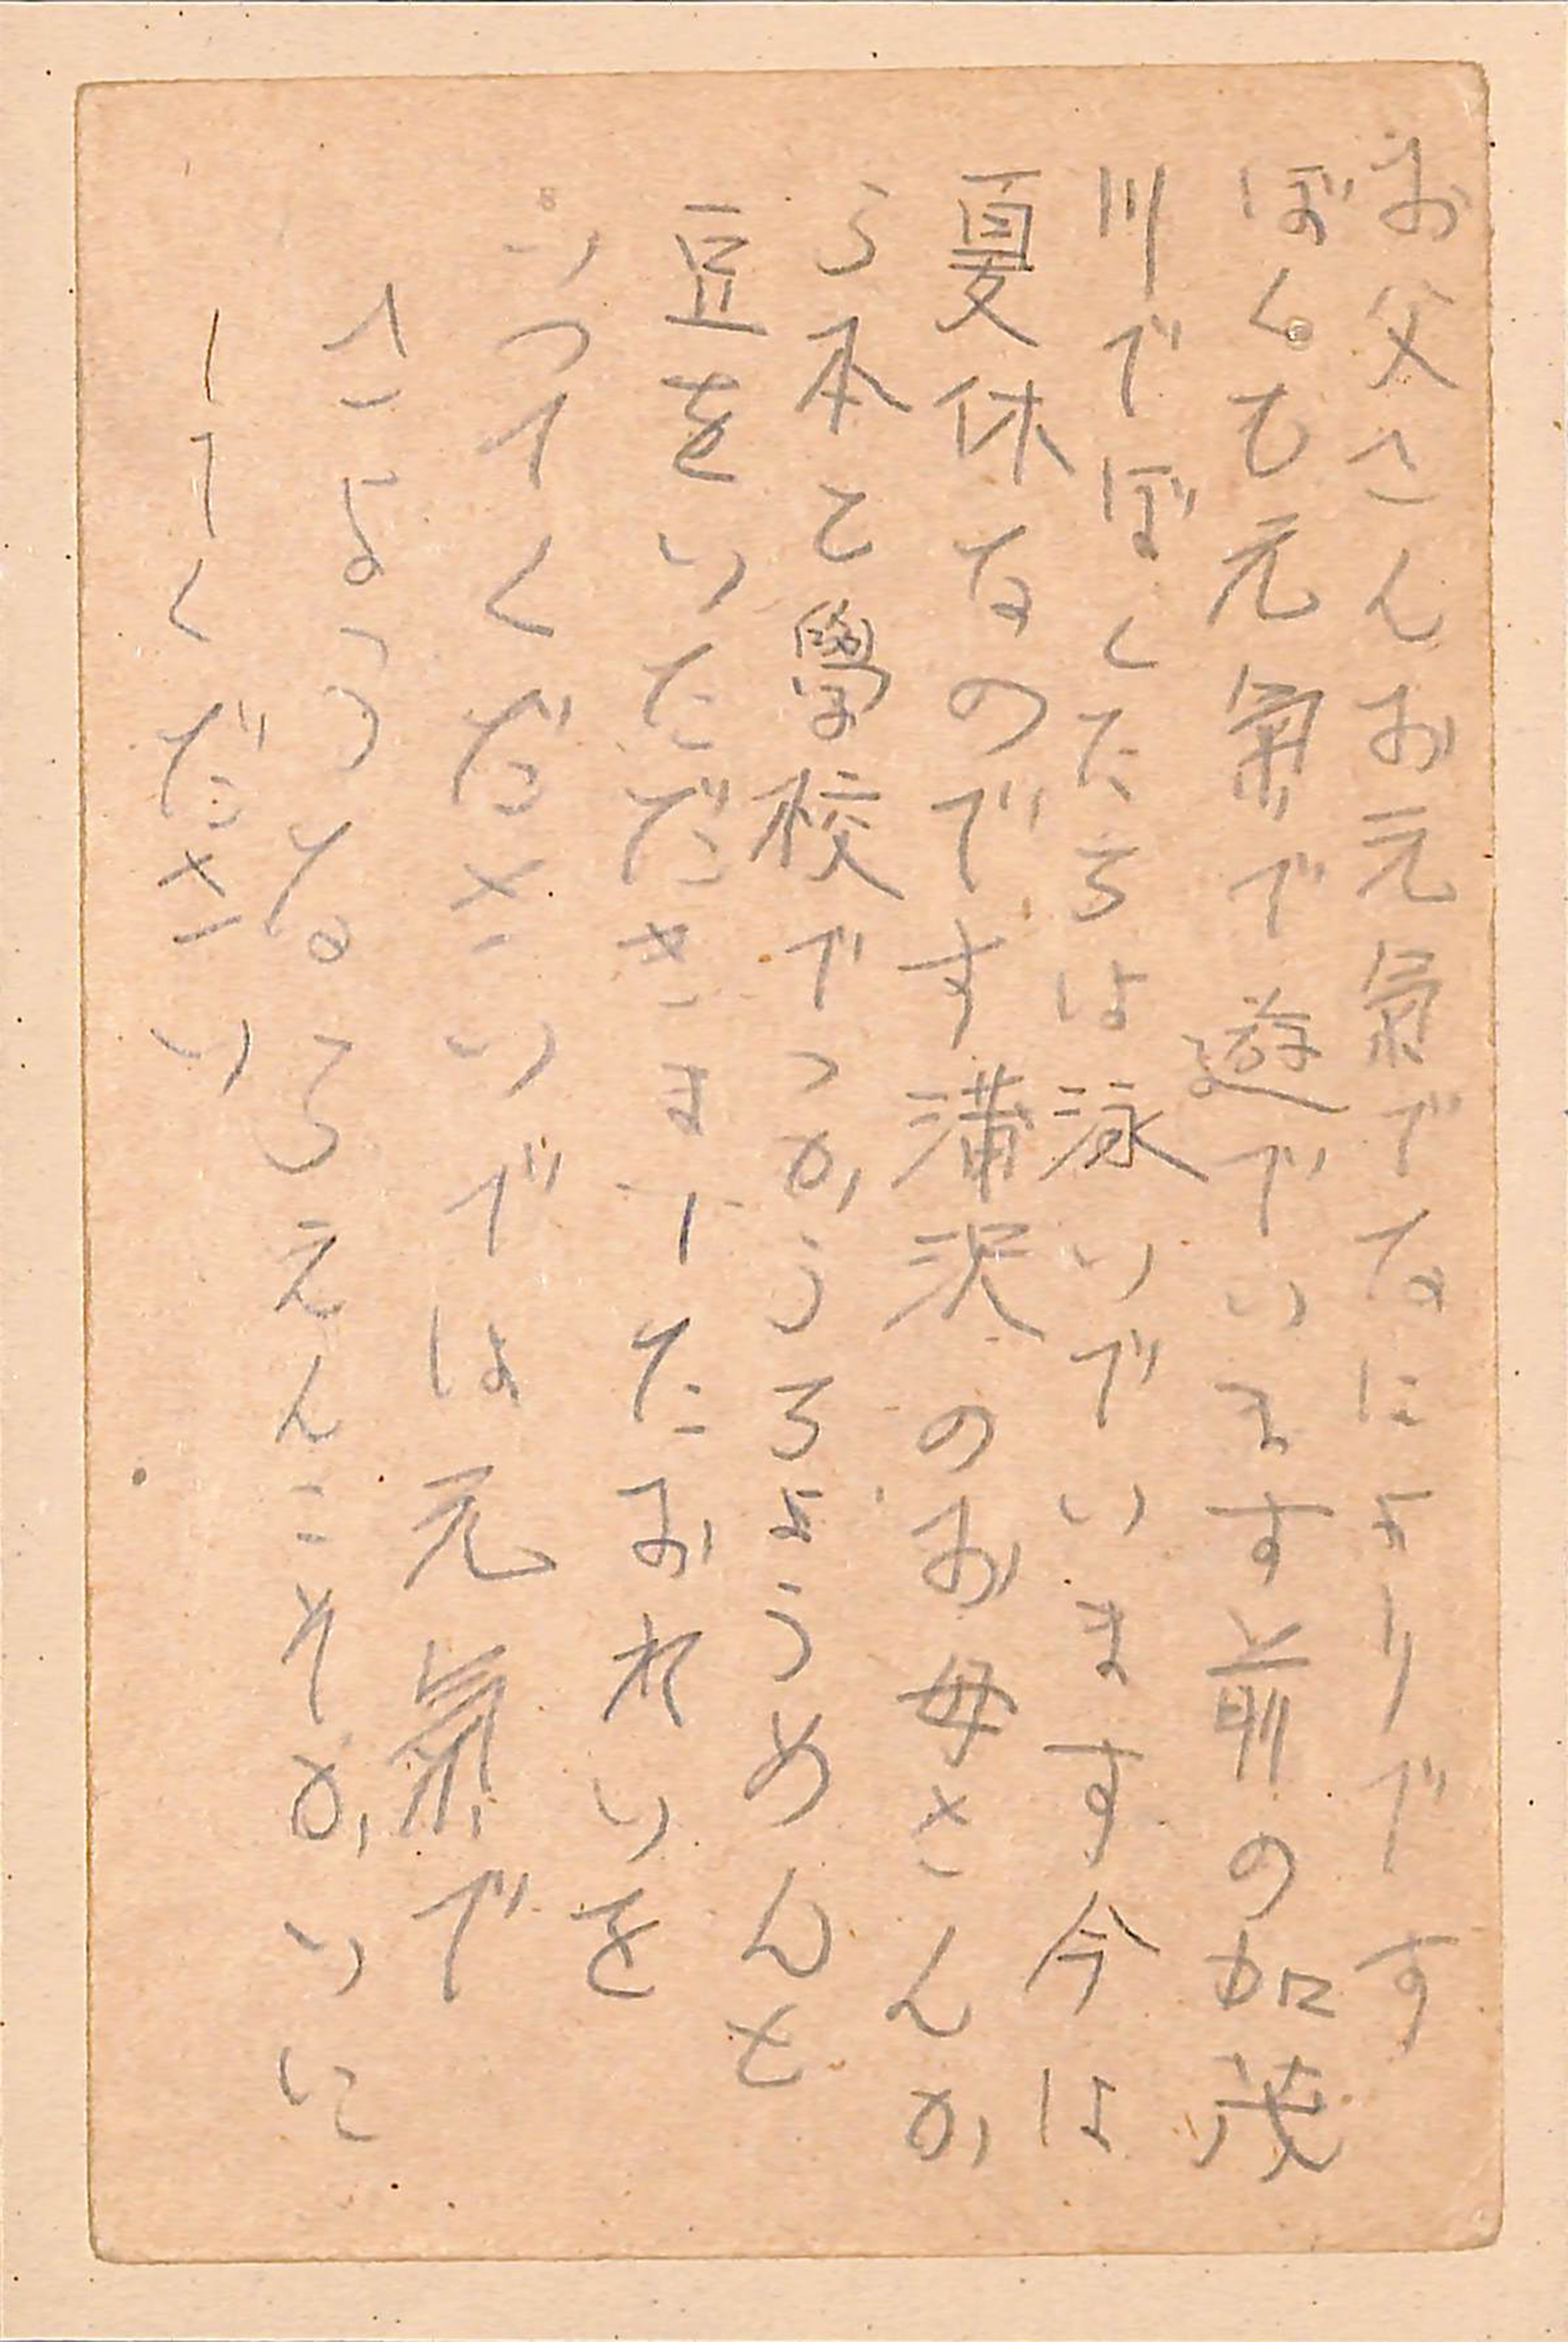 お父さんお元氣でなによりです
ぼくも元氣で遊でいます前の加茂
川でぼくたちは泳いでいます今は
夏休なのです溝沢のお母さんか
ら本と學校でつかうろようめんと
豆をいただきましたおれいを
いつてくださいでは元氣で
さようなら えんこそかいに
してください